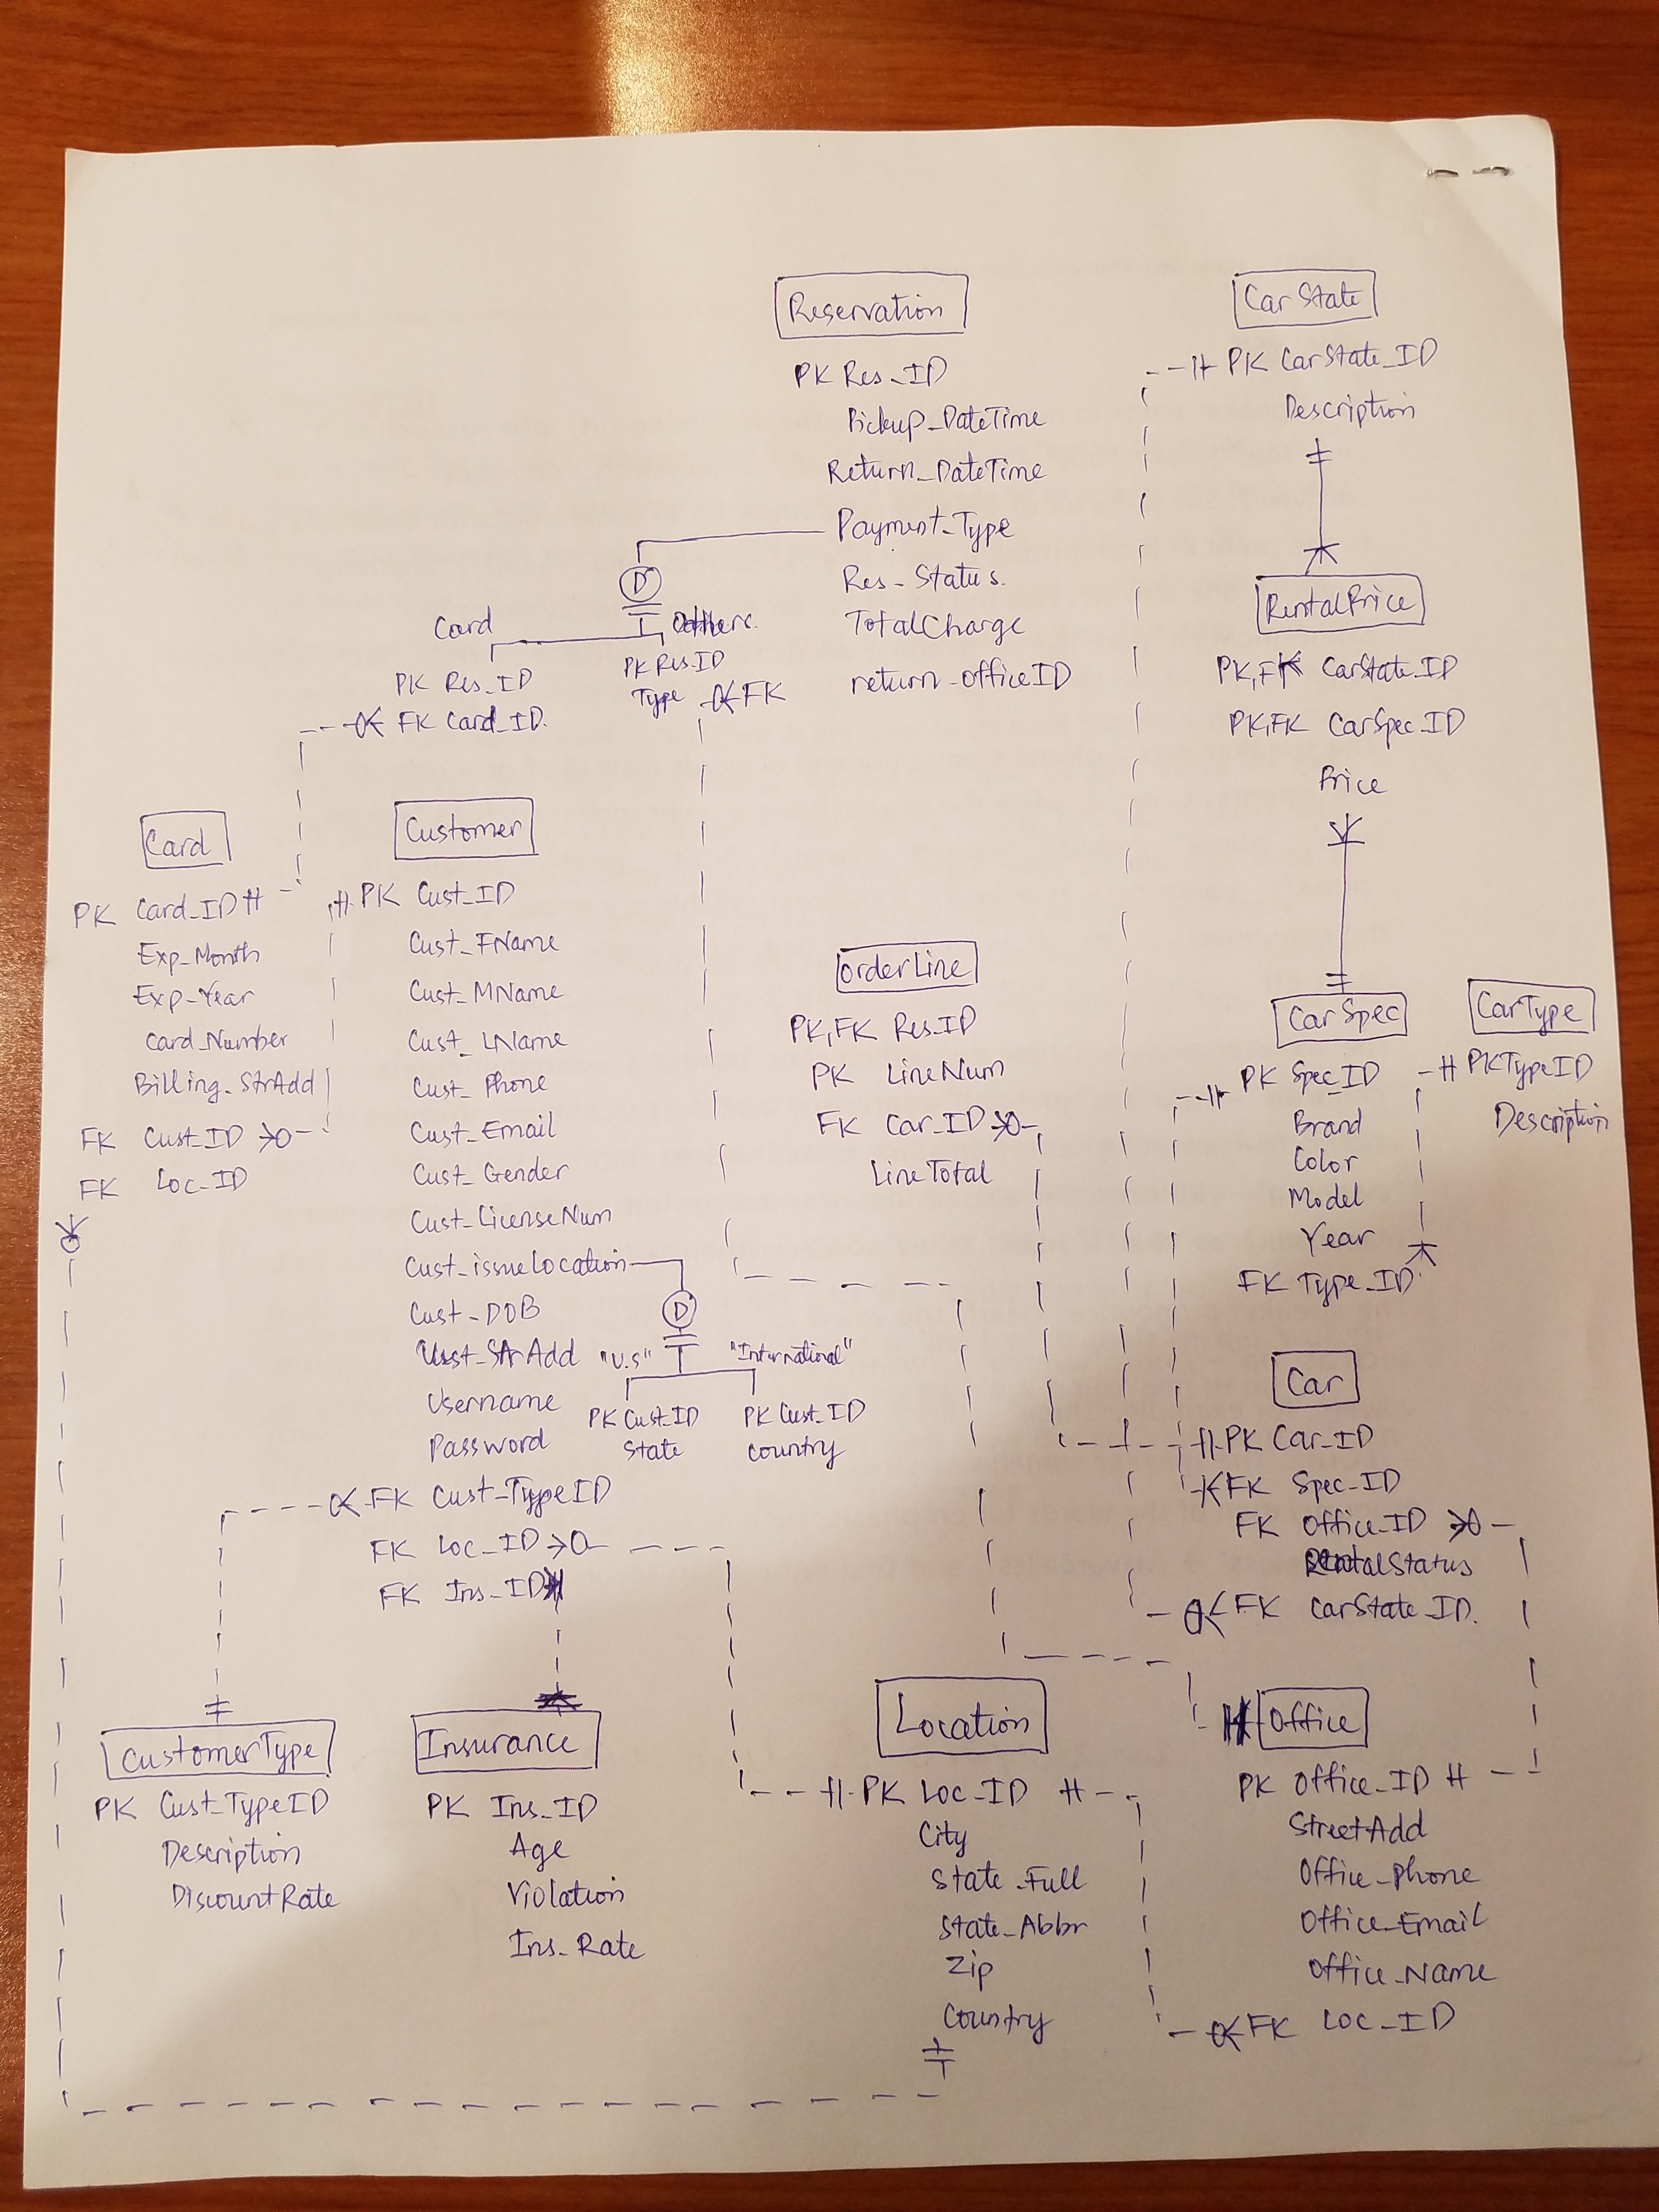 Reservation
PK Res_ID
Pickup_DateTime
Return_DateTime
Payment_Type
Res_Status.
TotalCharge
return_officeID
D
Card
Others.
PK Res_ID
FK Card_ID.
PK Res_ID
Type FK
Car State
PK CarState_ID
Description
RentalPrice
PK,FK CarState_ID
PK,FK CarSpec_ID
Price
Card
PK Card_ID
Exp_Month
Exp_Year
Card_Number
Billing_StrAdd
FK Cust_ID
FK Loc_ID
Customer
PK Cust_ID
Cust_FName
Cust_MName
Cust_LName
Cust_Phone
Cust_Email
Cust_Gender
Cust_LicenseNum
Cust_issueLocation
Cust_DOB
Cust_StrAdd
Username
Password
FK Cust_TypeID
FK Loc_ID
FK Ins_ID
D
"U.S"
"International"
PK Cust_ID
State
PK Cust_ID
Country
orderLine
PK,FK Res_ID
PK LineNum
FK Car_ID
LineTotal
CarSpec
PK Spec_ID
Brand
Color
Model
Year
FK Type_ID
CarType
PK TypeID
Description
Car
PK Car_ID
FK Spec_ID
FK Office_ID
RentalStatus
FK CarState_ID.
CustomerType
PK Cust_TypeID
Description
DiscountRate
Insurance
PK Ins_ID
Age
Violation
Ins_Rate
Location
PK Loc_ID
City
State_Full
State_Abbr
Zip
Country
Office
PK Office_ID
StreetAdd
Office_Phone
Office_Email
Office_Name
FK Loc_ID